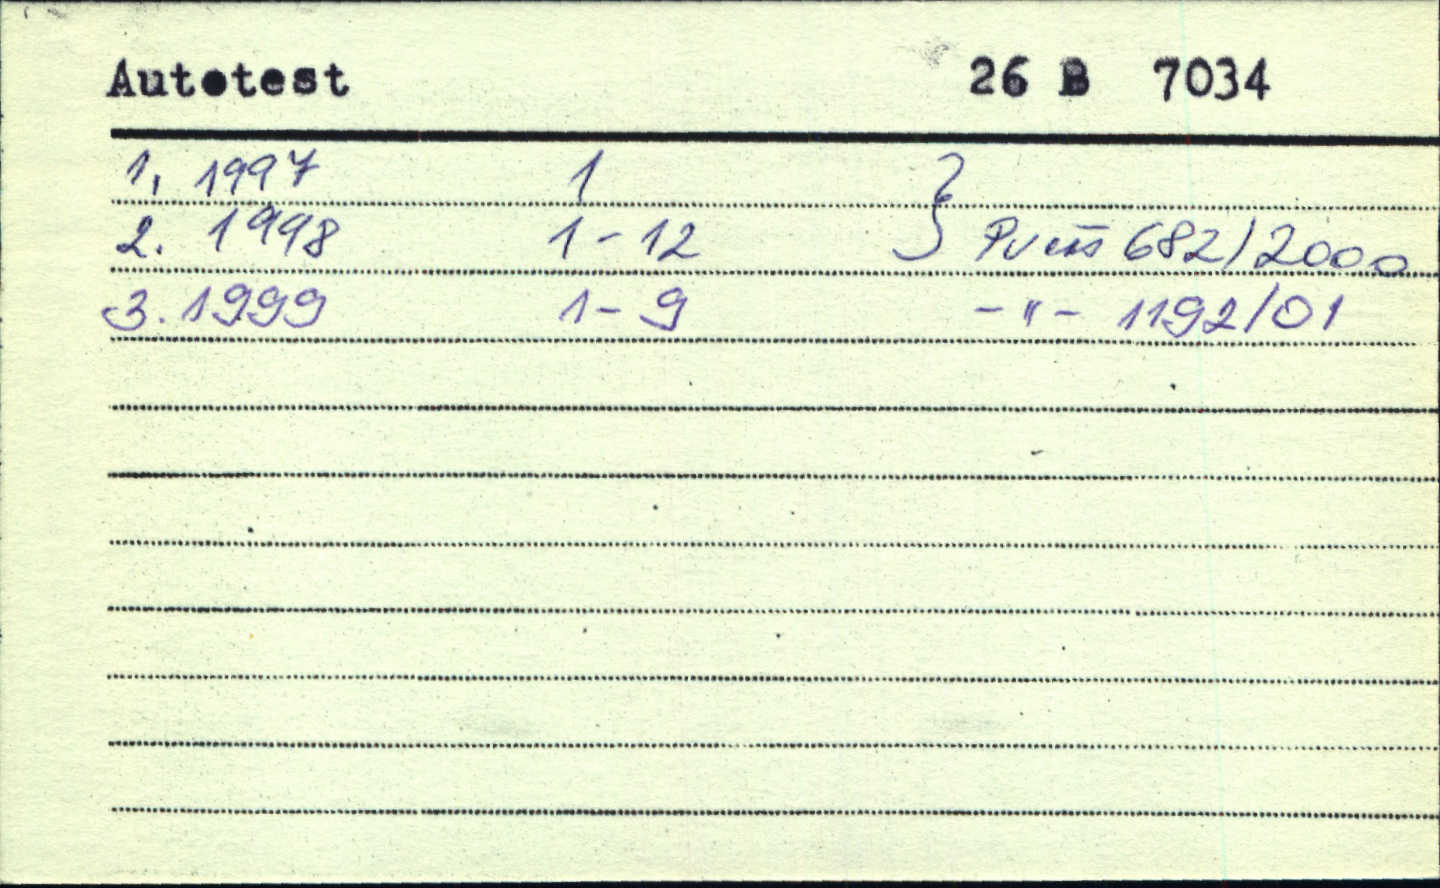 Autotest 26 B 7034
1, 1997 1 }
2. 1998 1-12 682/2000
3. 1999 1-9 -"- 1192/01